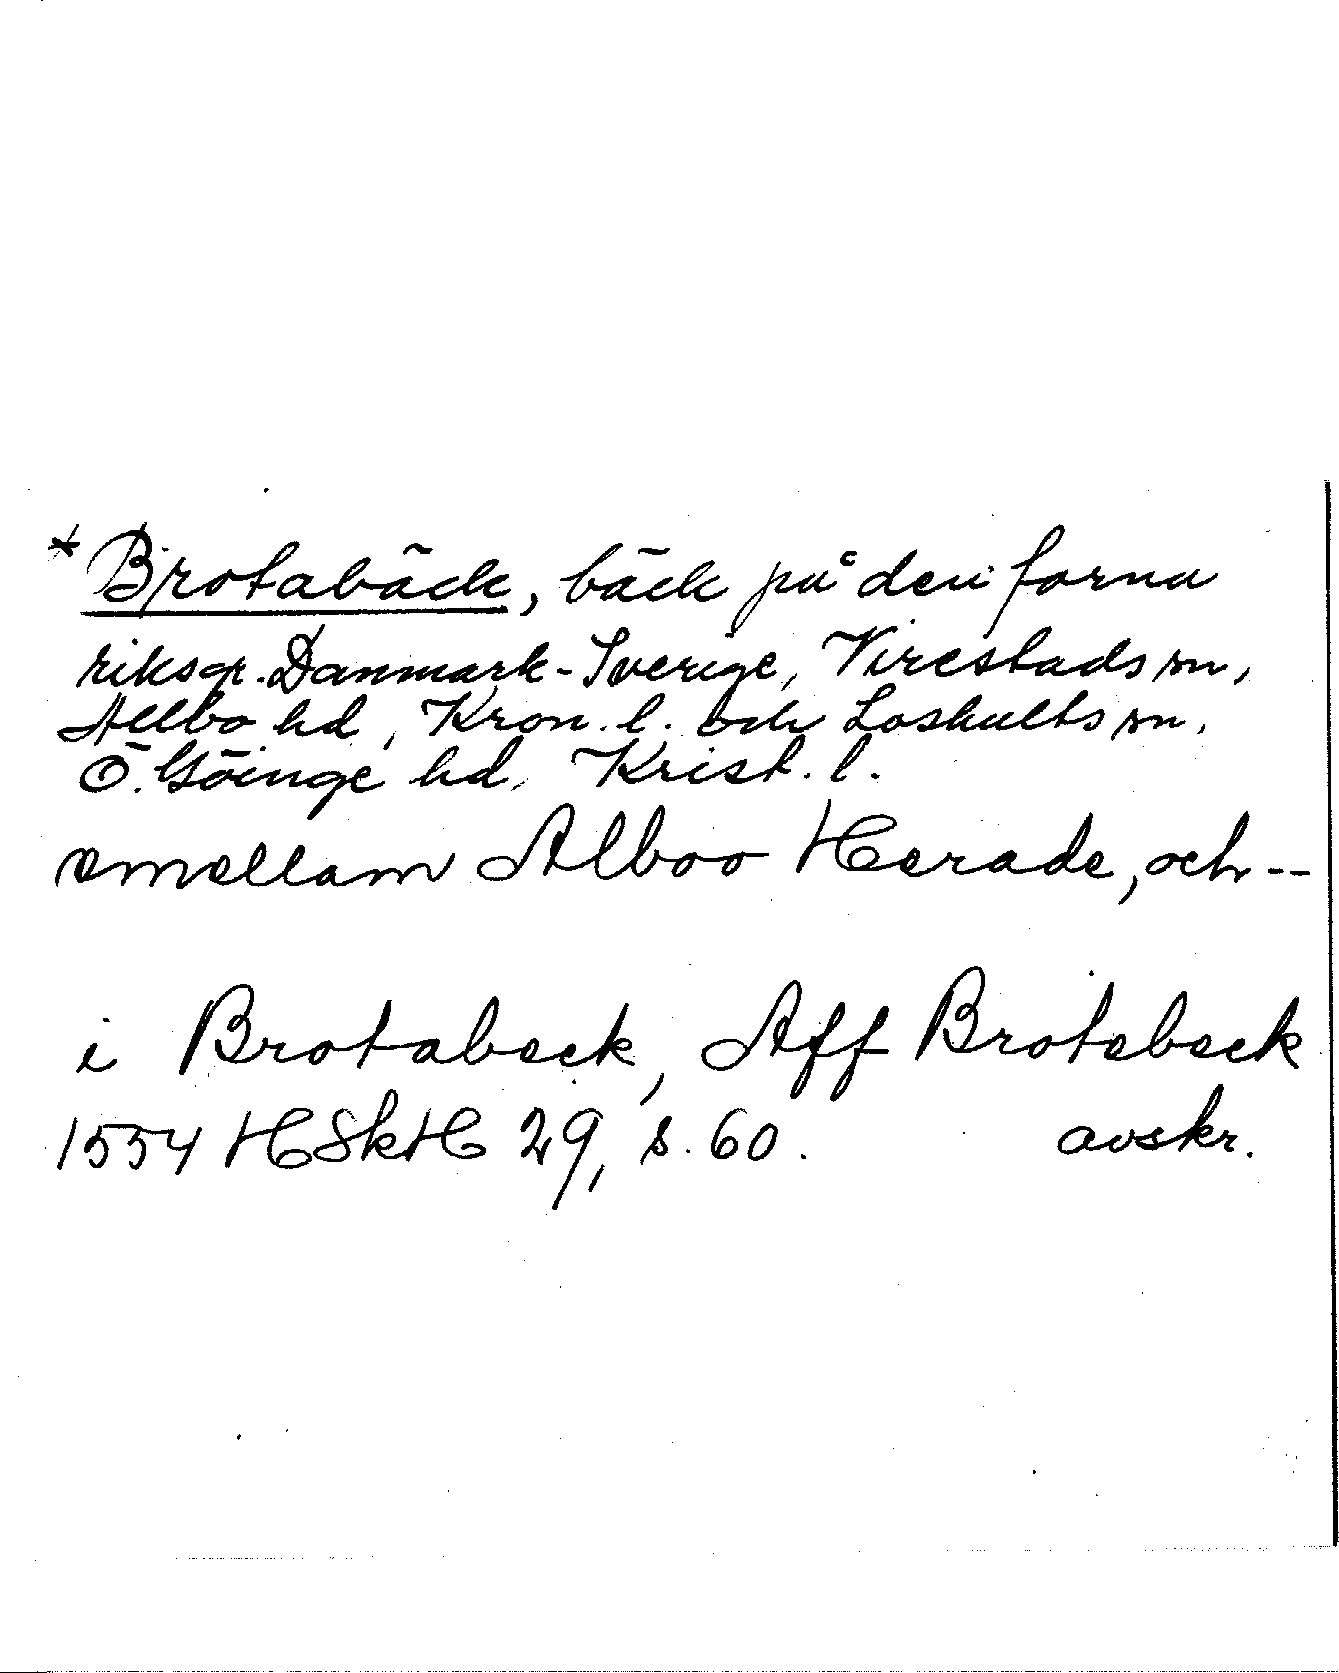 *Brotabäck, bäck på den forna
riksgr. Danmark-Sverige, Virestads sn,
Allbo hd, Kron. l. och Loshults sn,
Ö. Göinge hd, Krist. l.
emellam Alboo Herade, och --
i Brotabeck, Aff Brotebeck
1554 HSkH 29, s. 60. avskr.